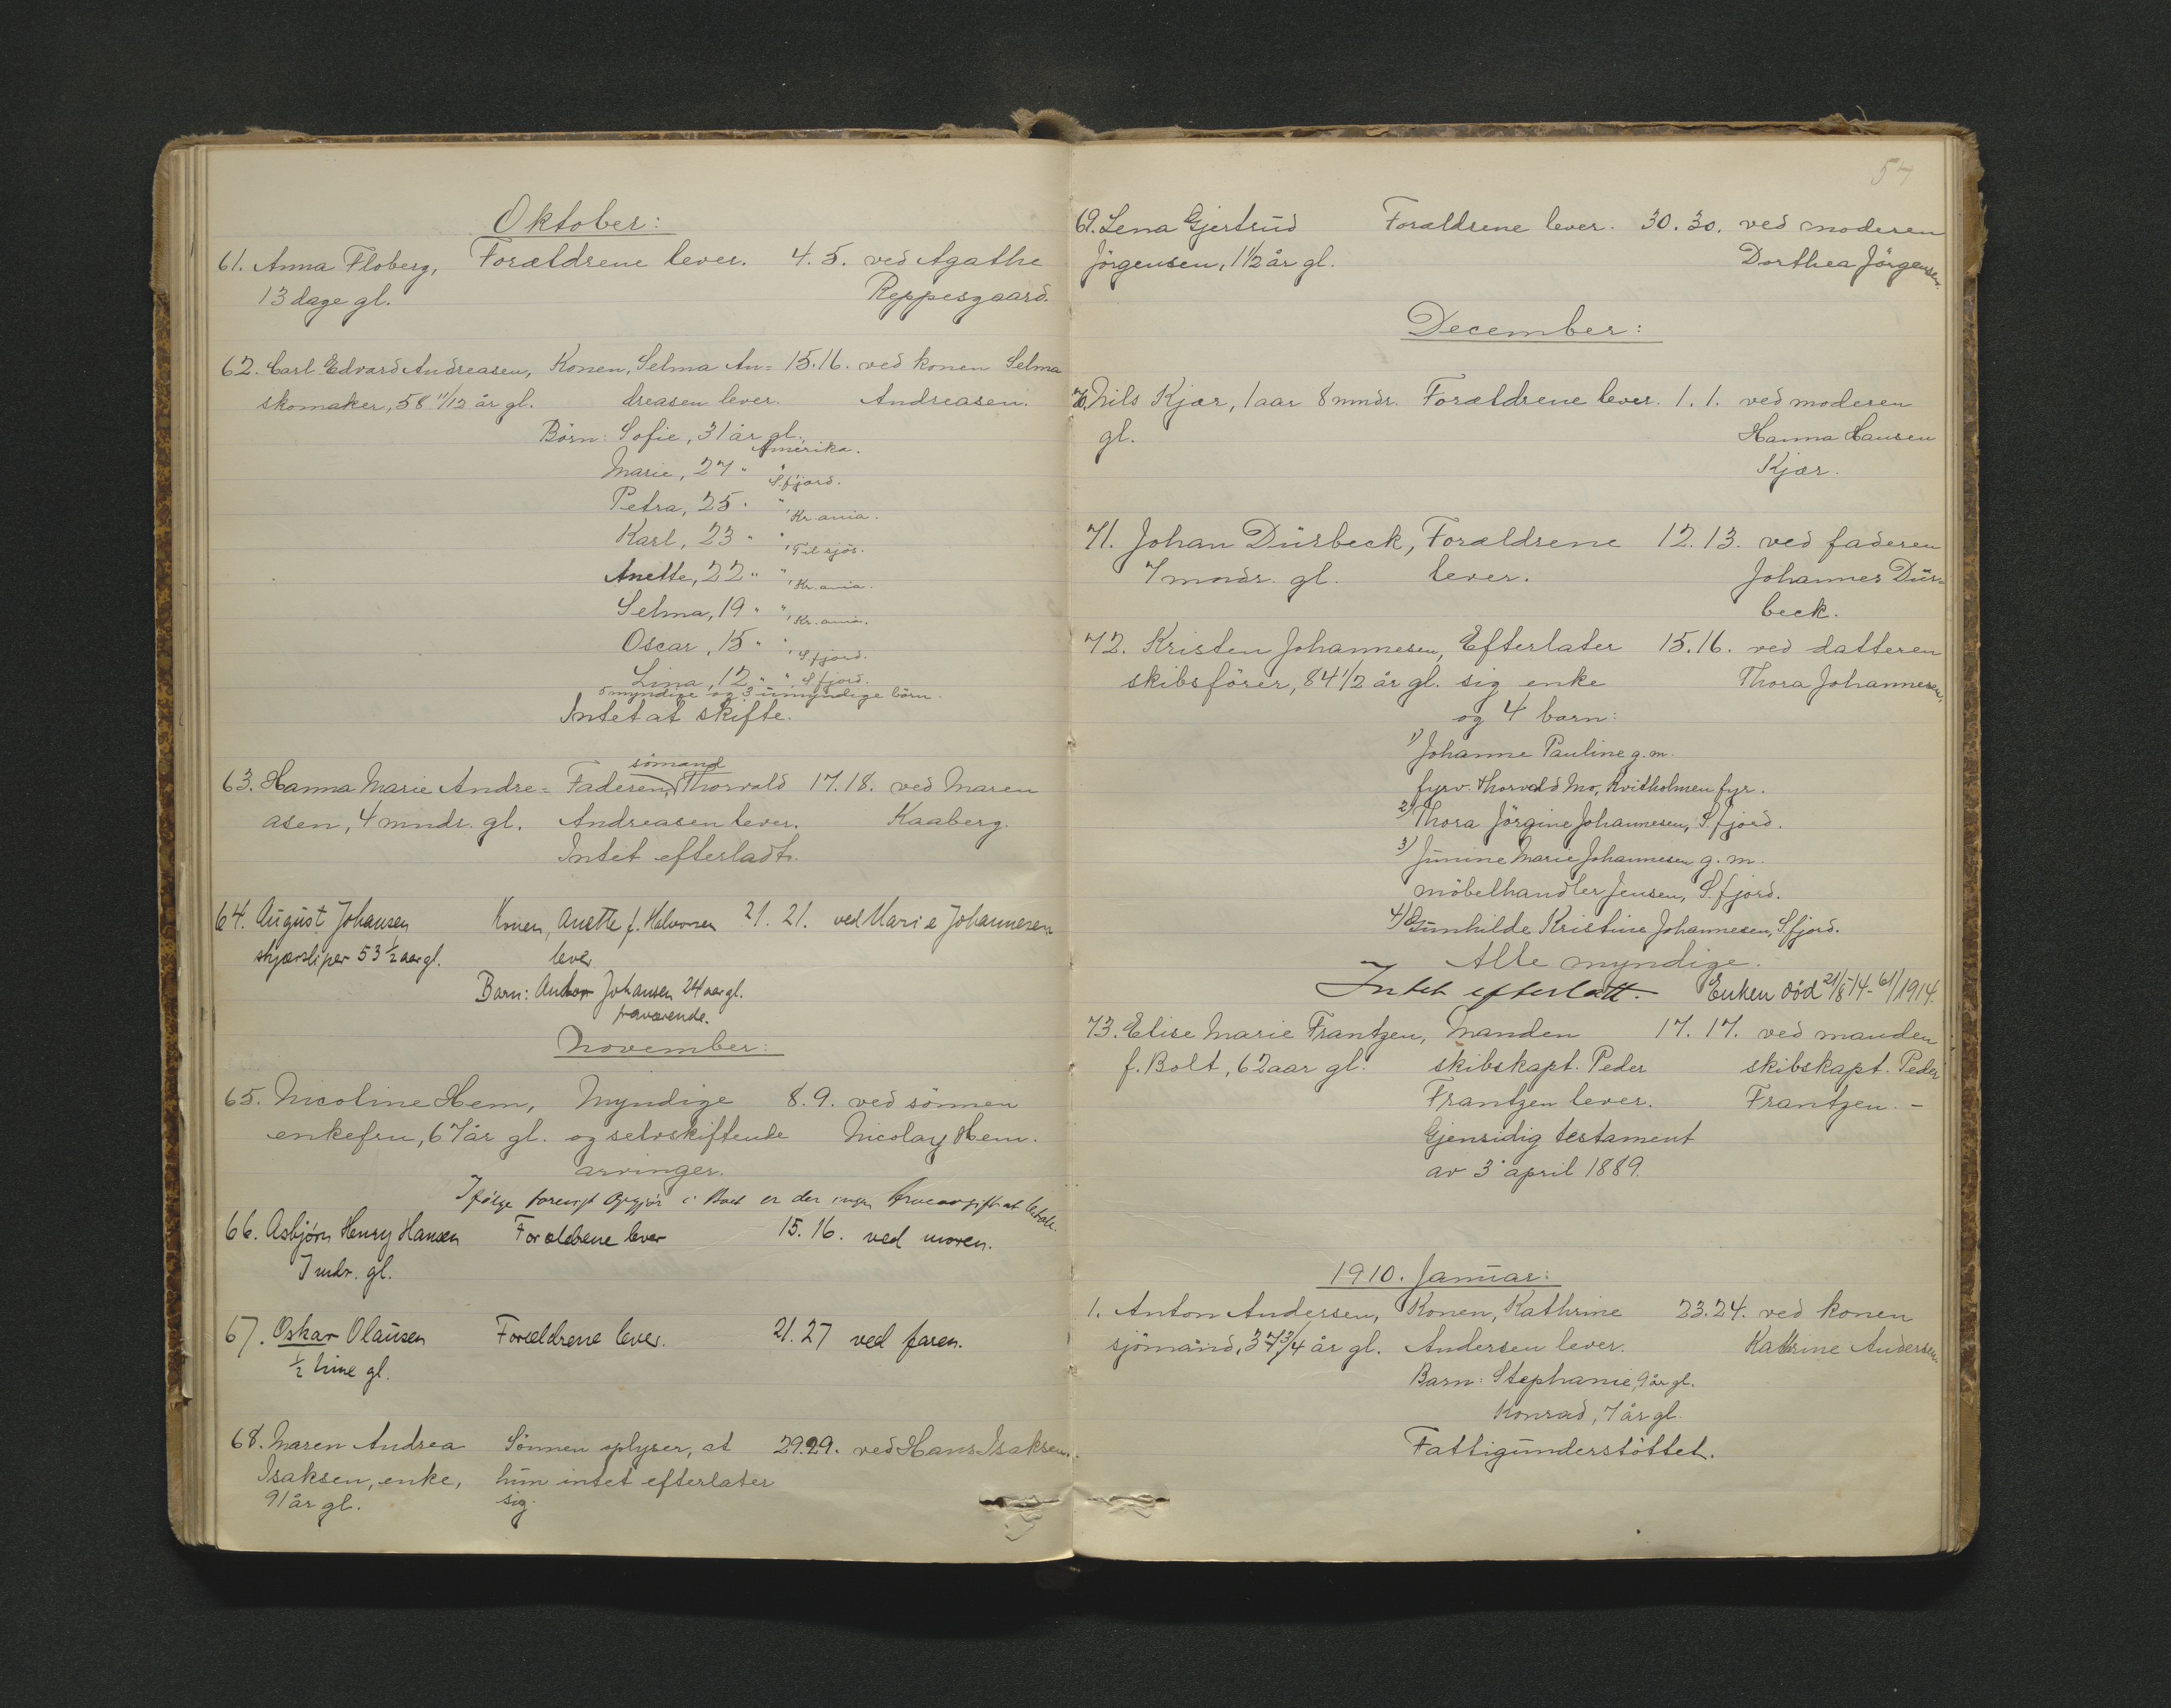 Oktober:
61. Anna Floberg, Forældrene lever. 4. 5. ved Agathe
13 dage gl. Reppesgaard.
62. Carl Edvard Andreasen, Konen, Selma An= 15.16. ved konen Selma
skomaker, 58 11/12 år gl. dreasen lever. Andreasen.
Börn: Sofie, 31 år gl.,
Amerika.
Marie, 27 " "
S.fjord.
Petra, 25 " "
, Kr.ania.
Karl, 23 " "
, Til sjös.
Anette, 22 " "
, Kr.ania.
Selma, 19 " "
, Kr.ania.
Oscar, 15 " "
, S.fjord.
Lina, 12 " " S.fjord.
5 myndige og 3 umyndige börn.
Intet at skifte.
sömand
63. Hanna Marie Andre= Faderen, Thorvald 17.18. ved Maren
asen, 4 mndr. gl. Andreasen lever. Kaaberg.
Intet efterladt.
64. August Johansen Konen, Anette f. Halvorsen 21. 21. ved Marie Johannesen
skjærsliper 53 1/2 aar gl. lever
Barn: Anton Johansen 24 aar gl.
fraværende.
November:
65. Nicoline Hem, Myndige 8. 9. ved sönnen
enkefru, 67 år gl. og selvskiftende Nicolay Hem.
arvinger.
Ifølge forevist Opgjør i Boet er der ingen Arveavgift at betale.
66. Asbjörn Henry Hansen Forældrene lever 15. 16. ved moren.
7 mdr. gl.
67. Oskar Olausen Forældrene lever. 21. 27 ved faren.
1/2 time gl.
68. Maren Andrea Sönnen oplyser, at 29.29. ved Hans Isaksen.
Isaksen, enke, hun intet efterlater
91 år gl. sig.
57
69. Lena Gjertrud Forældrene lever. 30. 30. ved moderen
Jörgensen, 1 1/2 år gl. Dorthea Jörgensen.
December:
70. Nils Kjær, 1 aar 8 mndr. Forældrene lever. 1. 1. ved moderen
gl. Hanna Hansen
Kjær.
71. Johan Dürbeck, Forældrene 12. 13. ved faderen
7 mndr. gl. lever. Johannes Dür=
beck.
72. Kristen Johannesen, Efterlater 15.16. ved datteren
skibsförer, 84 1/2 år gl. sig enke Thora Johannesen.
og 4 barn:
1) Johanne Pauline g.m.
fyrv. Thorvald Mo, Kvitholmen fyr.
2) Thora Jörgine Johannesen, S.fjord.
3) Junine Marie Johannesen g. m.
möbelhandler Jensen, S.fjord.
4) Gunhilde Kristine Johannesen, S.fjord.
Alle myndige.
Intet efterlatt. Enken död 21/5 14 - 61/1914.
73. Elise Marie Frantzen, Manden 17. 17. ved manden
f. Bolt, 62 aar gl. skibskapt. Peder skibskapt. Peder
Frantzen lever. Frantzen. -
Gjensidig testament
av 3' april 1889.
1910. Januar:
1. Anton Andersen, Konen, Kathrine 23.24. ved konen
sjömand, 37 3/4 år gl. Andersen lever. Kathrine Andersen.
Barn: Stephanie, 9 år gl.
Konrad, 7 år gl.
Fattigunderstöttet.